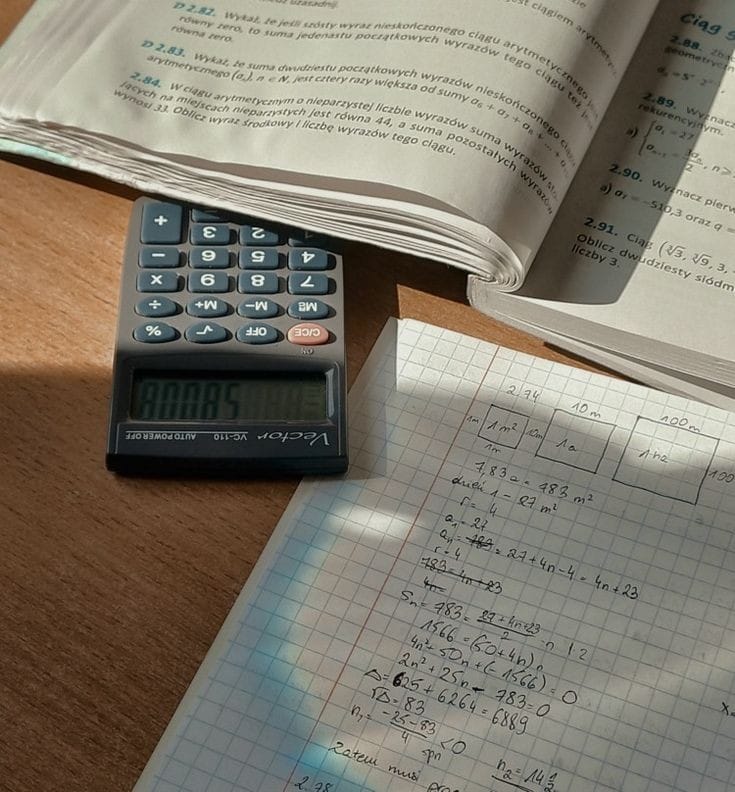 D 2.82. Wykaż, że jeśli szósty wyraz nieskończonego ciągu arytmetycznego
równy zero, to suma jedenastu początkowych wyrazów tego ciągu też
równa zero.
D 2.83. Wykaż, że suma dwudziestu początkowych wyrazów nieskończonego
arytmetycznego (aₙ), n ∈ N, jest cztery razy większa od sumy a₆ + a₇ + a₈ + ... +
2.84. W ciągu arytmetycznym o nieparzystej liczbie wyrazów suma wyrazów
jących na miejscach nieparzystych jest równa 44, a suma pozostałych wyrazów
wynosi 33. Oblicz wyraz środkowy i liczbę wyrazów tego ciągu.
Ciąg
2.88.
geometryczn
2.89. Wyznacz
rekurencyjnym.
a) a₁ = 27
2.90. Wyznacz pierw
a) a₇ = -510,3 oraz q =
2.91. Ciąg (∛3, ∛9, 3,
Oblicz dwudziesty siódm
liczby 3.
+ 3 2 1
− 6 5 4
× 9 8 7
÷ M+ M− MR
% √ OFF C/CE
ON
80085
Vector VC-110 AUTO POWER OFF
2.74
10m 100m
1m 1m² 10m 1a 1ha 100
1m
7,83a = 783 m²
dzień 1 = 27 m²
r = 4
a₁ = 27
aₙ = 783 = 27 + 4n − 4 = 4n + 23
r = 4
783 = 4n + 23
4n =
Sₙ = 783 = (27 + 4n + 23)/2 · n | · 2
1566 = (50 + 4n) n
4n² + 50n + (−1566) = 0
2n² + 25n − 783 = 0
Δ = 625 + 6264 = 6889
√Δ = 83
n₁ = (−25 − 83)/4 < 0
spn n₂ = 14 1/2
Zatem musi
2.78
x=